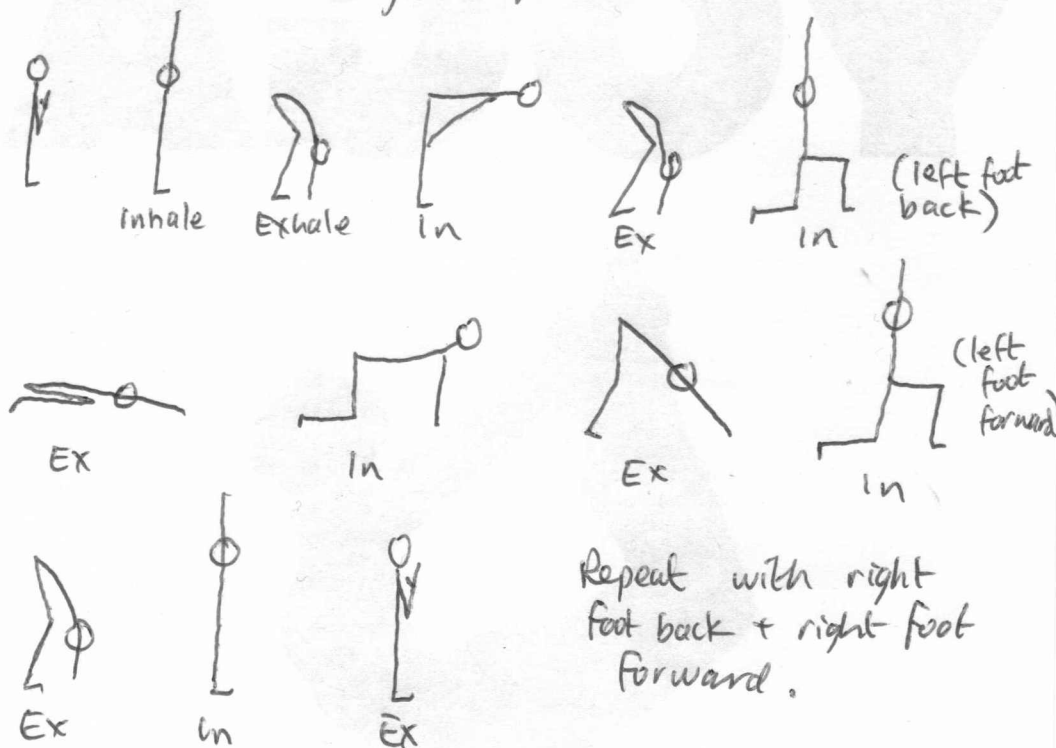 inhale Exhale In Ex In (left foot
back)
Ex In Ex In (left
foot
forward)
Ex In Ex
Repeat with right
foot back + right foot
forward.